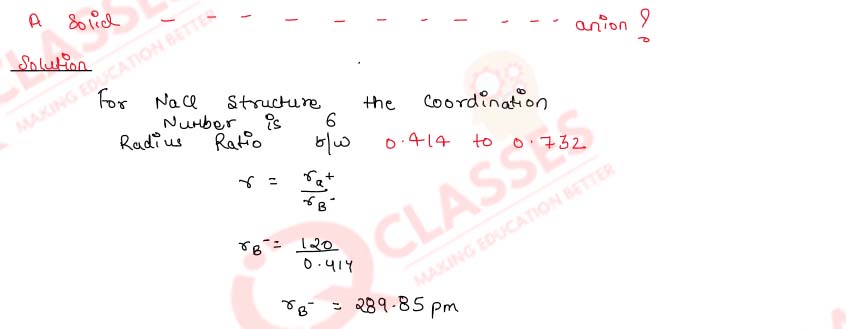 A Solid - - - - - - - - - - - anion ?
Solution
For NaCl Structure the Coordination
Number is 6
Radius Ratio b/w 0.414 to 0.732
r = ra+ / rB-
rB- = 120 / 0.414
rB- = 289.85 pm
CLASSES
MAKING EDUCATION BETTER
CLASSES
MAKING EDUCATION BETTER